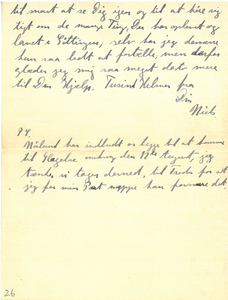 til snart at se Dig igen og til at høre rig-
tigt om de mange Ting, Du har oplevet og
lavet i Göttingen, selv har jeg desværre
kun saa lidt at fortælle, men derfor
glæder jeg mig saa meget det mere
til Din Hjælp. Tusind Hilsner fra
Din
Niels
P.S.
har indbudt os begge til at komme
til Slagelse omkring den August, jeg
tænker vi tager derned, til Trods for at
jeg for min Part næppe kan forsvare det.
26